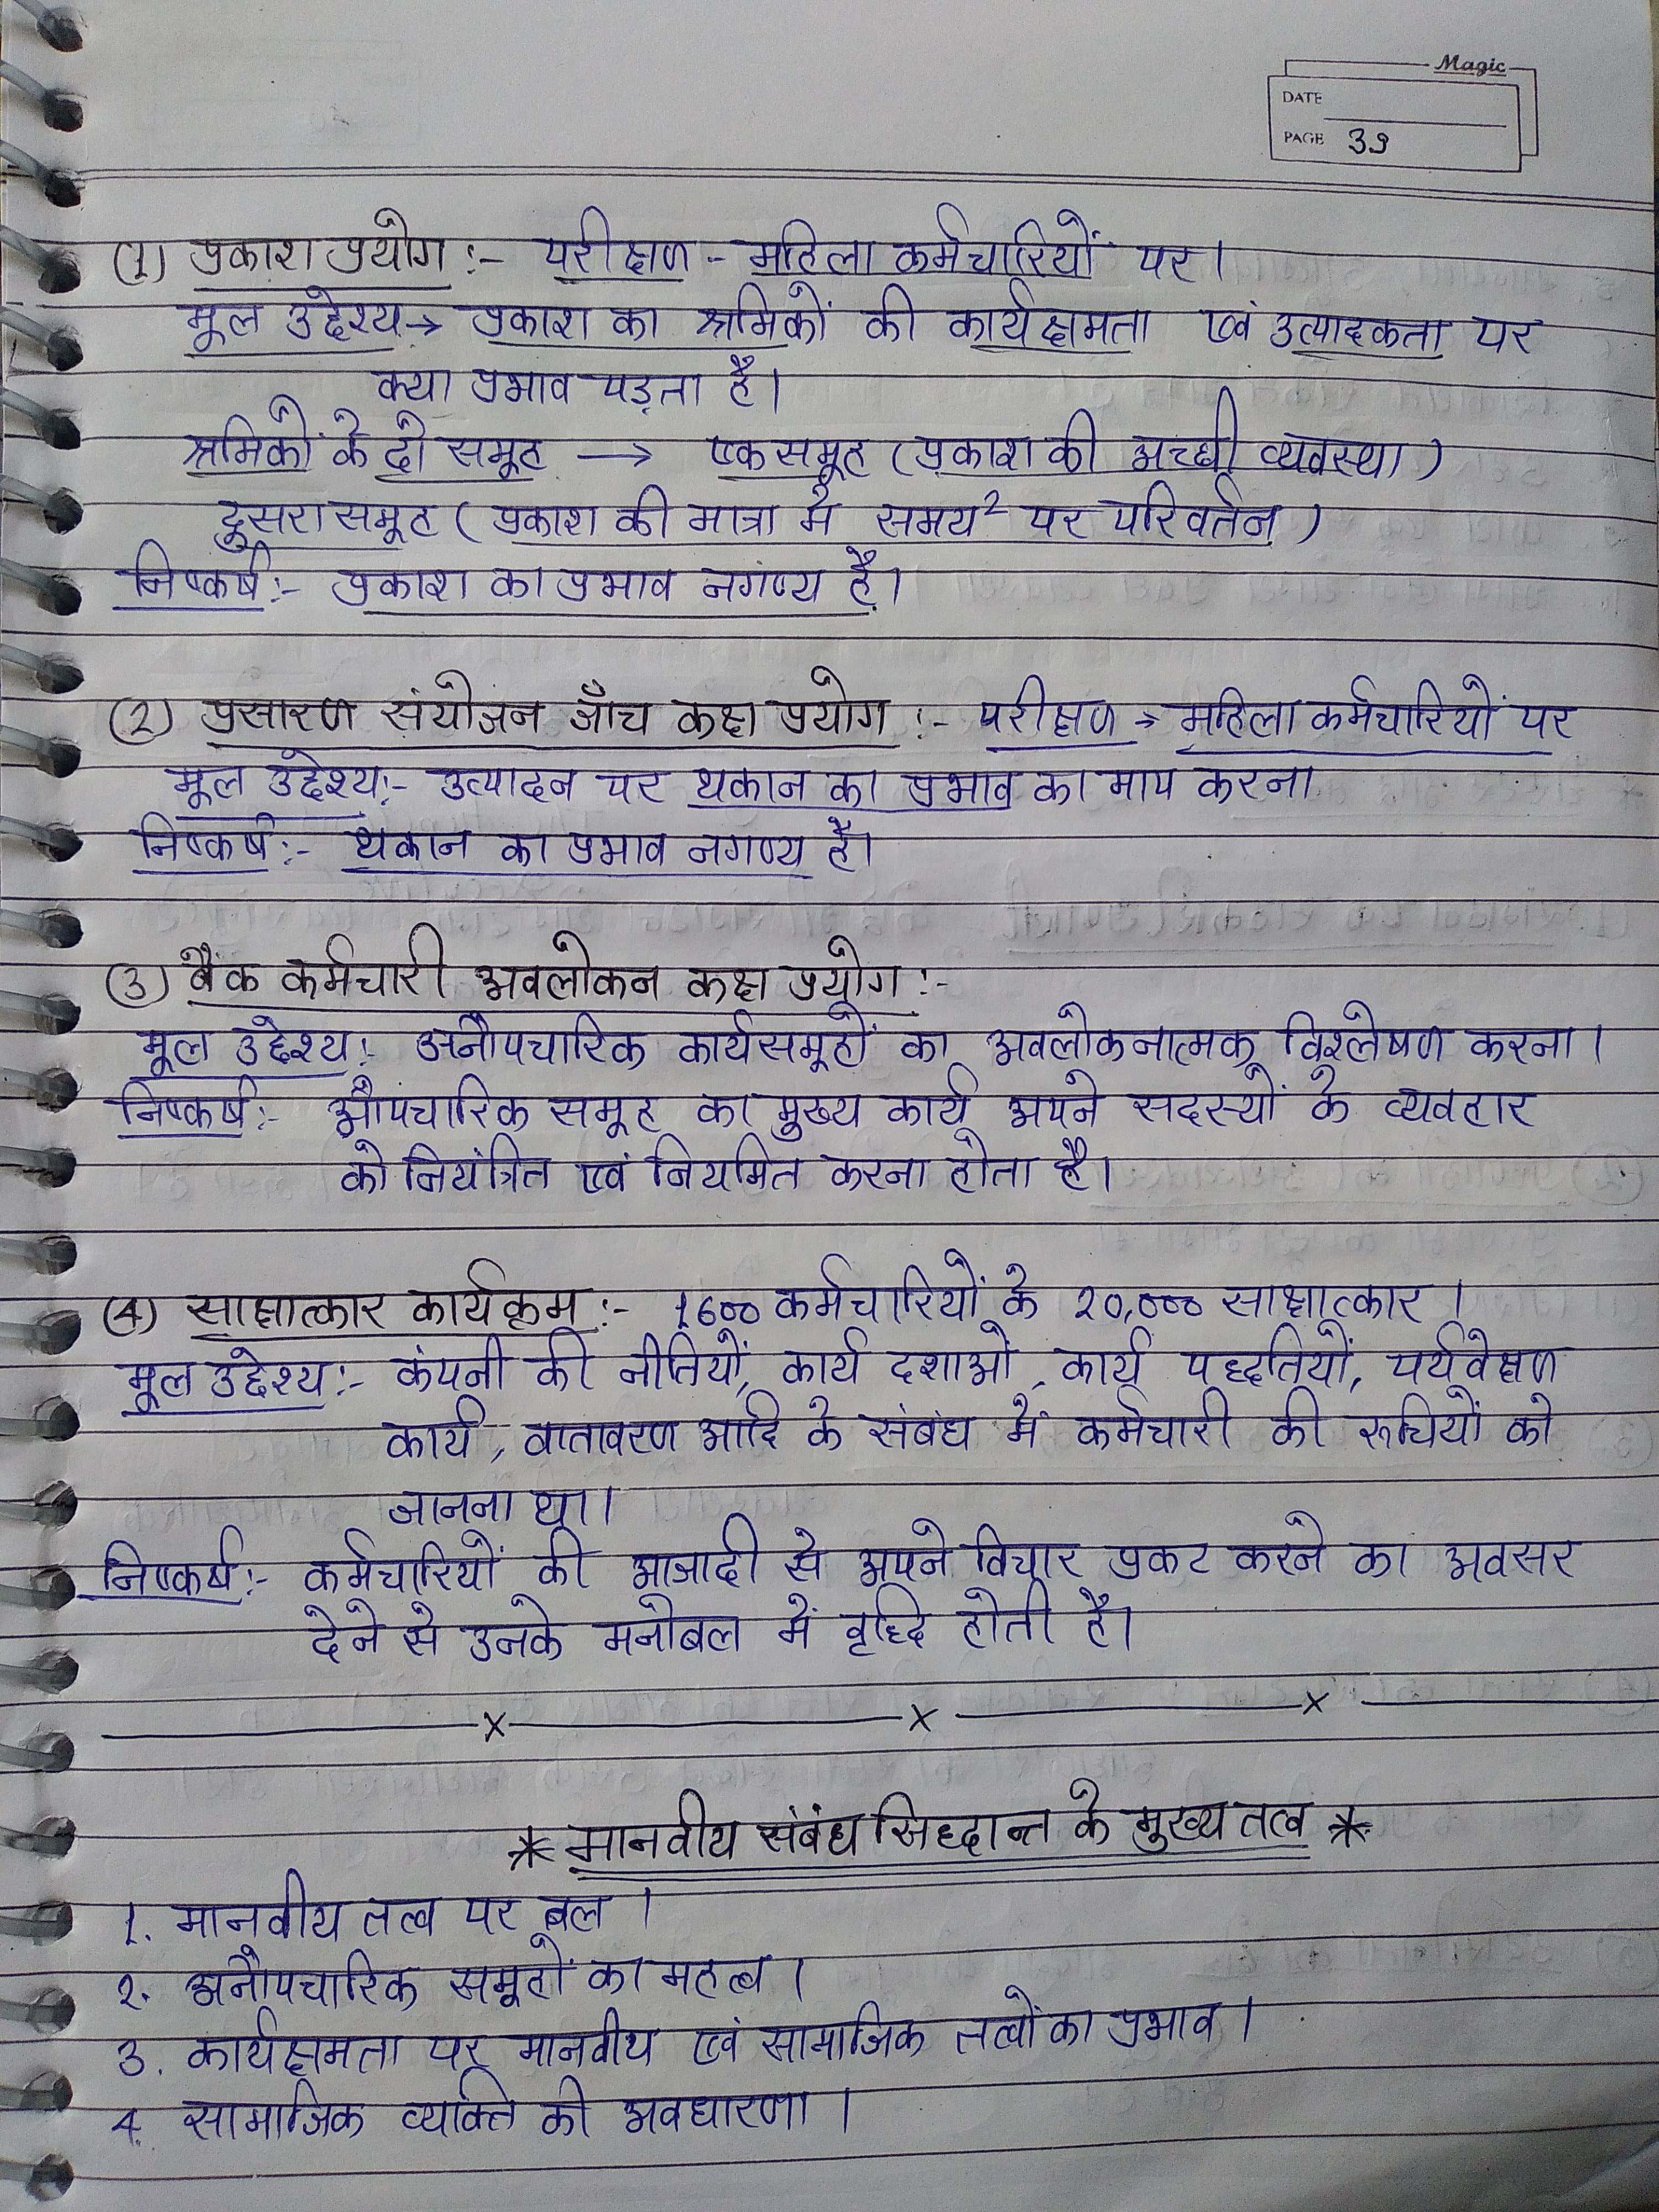 Magic
DATE
PAGE 39
(1) प्रकाश प्रयोग :- परीक्षण - महिला कर्मचारियों पर।
मूल उद्देश्य → प्रकाश का श्रमिकों की कार्यक्षमता एवं उत्पादकता पर
क्या प्रभाव पड़ता है।
श्रमिकों के दो समूह → एक समूह (प्रकाश की अच्छी व्यवस्था)
दुसरा समूह (प्रकाश की मात्रा में समय² पर परिवर्तन)
निष्कर्ष :- प्रकाश का प्रभाव नगण्य है।
(2) प्रसारण संयोजन जाँच कक्ष प्रयोग :- परीक्षण → महिला कर्मचारियों पर
मूल उद्देश्य :- उत्पादन पर थकान का प्रभाव का माप करना
निष्कर्ष :- थकान का प्रभाव नगण्य है।
(3) बैंक कर्मचारी अवलोकन कक्ष प्रयोग :-
मूल उद्देश्य : अनौपचारिक कार्यसमूहों का अवलोकनात्मक विश्लेषण करना।
निष्कर्ष :- औपचारिक समूह का मुख्य कार्य अपने सदस्यों के व्यवहार
को नियंत्रित एवं नियमित करना होता है।
(4) साक्षात्कार कार्यक्रम :- 1600 कर्मचारियों के 20,000 साक्षात्कार।
मूल उद्देश्य :- कंपनी की नीतियों, कार्य दशाओं, कार्य पद्धतियों, पर्यवेक्षण
कार्य, वातावरण आदि के संबंध में कर्मचारी की रूचियों को
जानना था।
निष्कर्ष :- कर्मचारियों की आजादी से अपने विचार प्रकट करने का अवसर
देने से उनके मनोबल में वृद्धि होती है।
x x x
* मानवीय संबंध सिद्धान्त के मुख्य तत्व *
1. मानवीय तत्व पर बल।
2. अनौपचारिक समूहों का महत्व।
3. कार्यक्षमता पर मानवीय एवं सामाजिक तत्वों का प्रभाव।
4. सामाजिक व्यक्ति की अवधारणा।